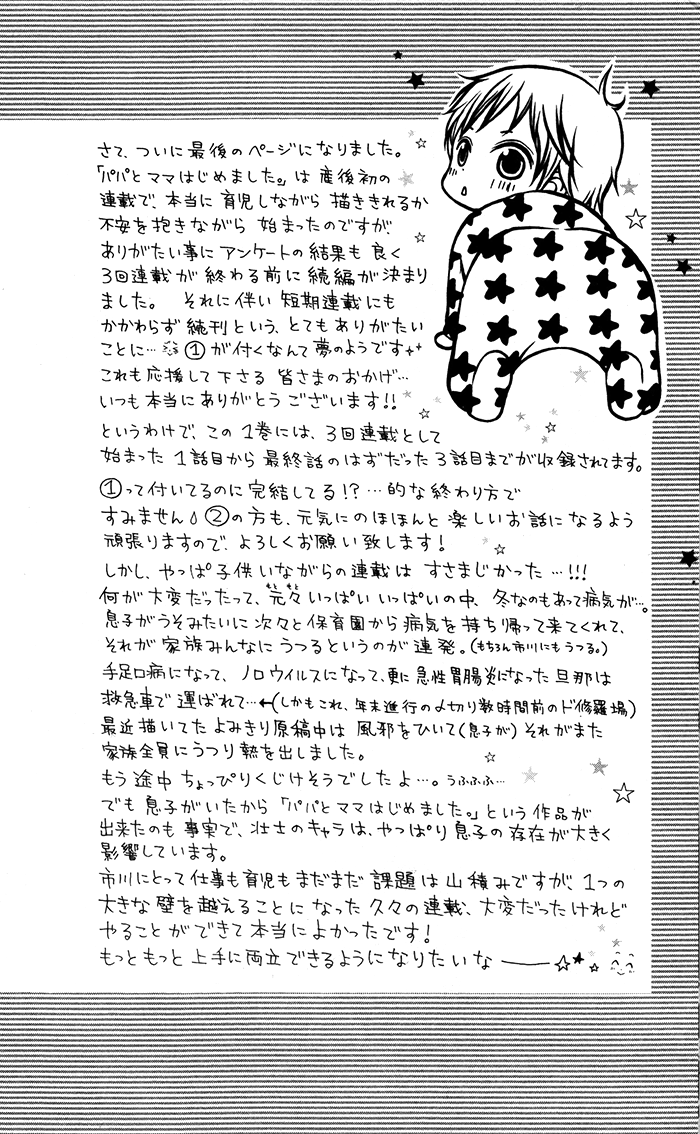 さて、ついに最後のページになりました。
「パパとママはじめました。」は産後初の
連載で、本当に育児しながら描ききれるか
不安を抱きながら始まったのですが、
ありがたい事にアンケートの結果も良く
3回連載が終わる前に続編が決まり
ました。 それに伴い短期連載にも
かかわらず続刊という、とてもありがたい
ことに…①が付くなんて夢のようです
これも応援して下さる皆さまのおかげ…
いつも本当にありがとうございます!!
というわけで、この1巻には、3回連載として
始まった1話目から最終話のはずだった3話目までが収録されてます。
①って付いてるのに完結してる!?…的な終わり方で
すみません ②の方も、元気にのほほんと楽しいお話になるよう
頑張りますので、よろしくお願い致します!
しかし、やっぱ子供いながらの連載はすさまじかった…!!!
何が大変だったって、元々いっぱいいっぱいの中、冬なのもあって病気が…。
もともと
息子がうそみたいに次々と保育園から病気を持ち帰って来てくれて、
それが家族みんなにうつるというのが連発。(もちろん市川にもうつる。)
手足口病になって、ノロウイルスになって、更に急性胃腸炎になった旦那は
救急車で運ばれて…←(しかもこれ、年末進行の〆切り数時間前のド修羅場)
最近描いてたよみきり原稿中は風邪をひいて(息子が)それがまた
家族全員にうつり熱を出しました。
もう途中ちょっぴりくじけそうでしたよ…。うふふふ…
でも息子がいたから「パパとママはじめました。」という作品が
出来たのも事実で、壮士のキャラは、やっぱり息子の存在が大きく
影響しています。
市川にとって仕事も育児もまだまだ課題は山積みですが、1つの
大きな壁を越えることになった久々の連載、大変だったけれど
やることができて本当によかったです!
もっともっと上手に両立できるようになりたいな――☆★☆